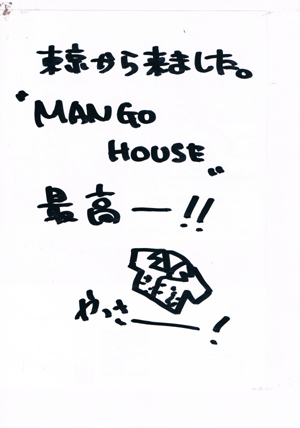 東京から来ました。
"MANGO
HOUSE"
最高ー!!
やっさー!